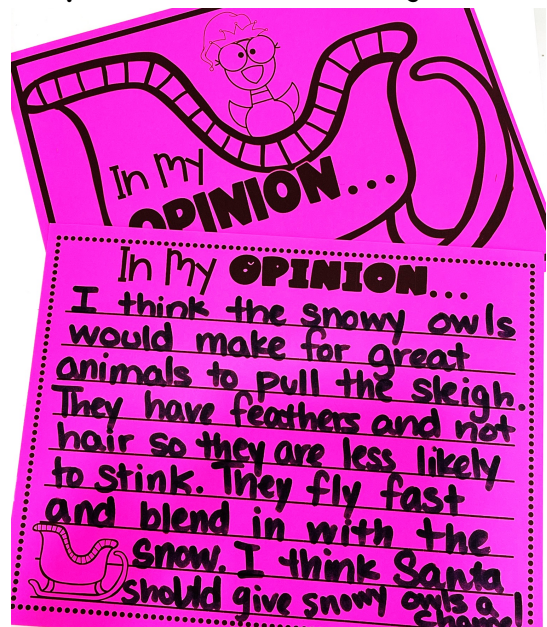 In my
OPINION...
In My OPINION...
I think the snowy owls
would make for great
animals to pull the sleigh.
They have feathers and not
hair so they are less likely
to stink. They fly fast
and blend in with the
snow. I think Santa
should give snowy owls a
chance!